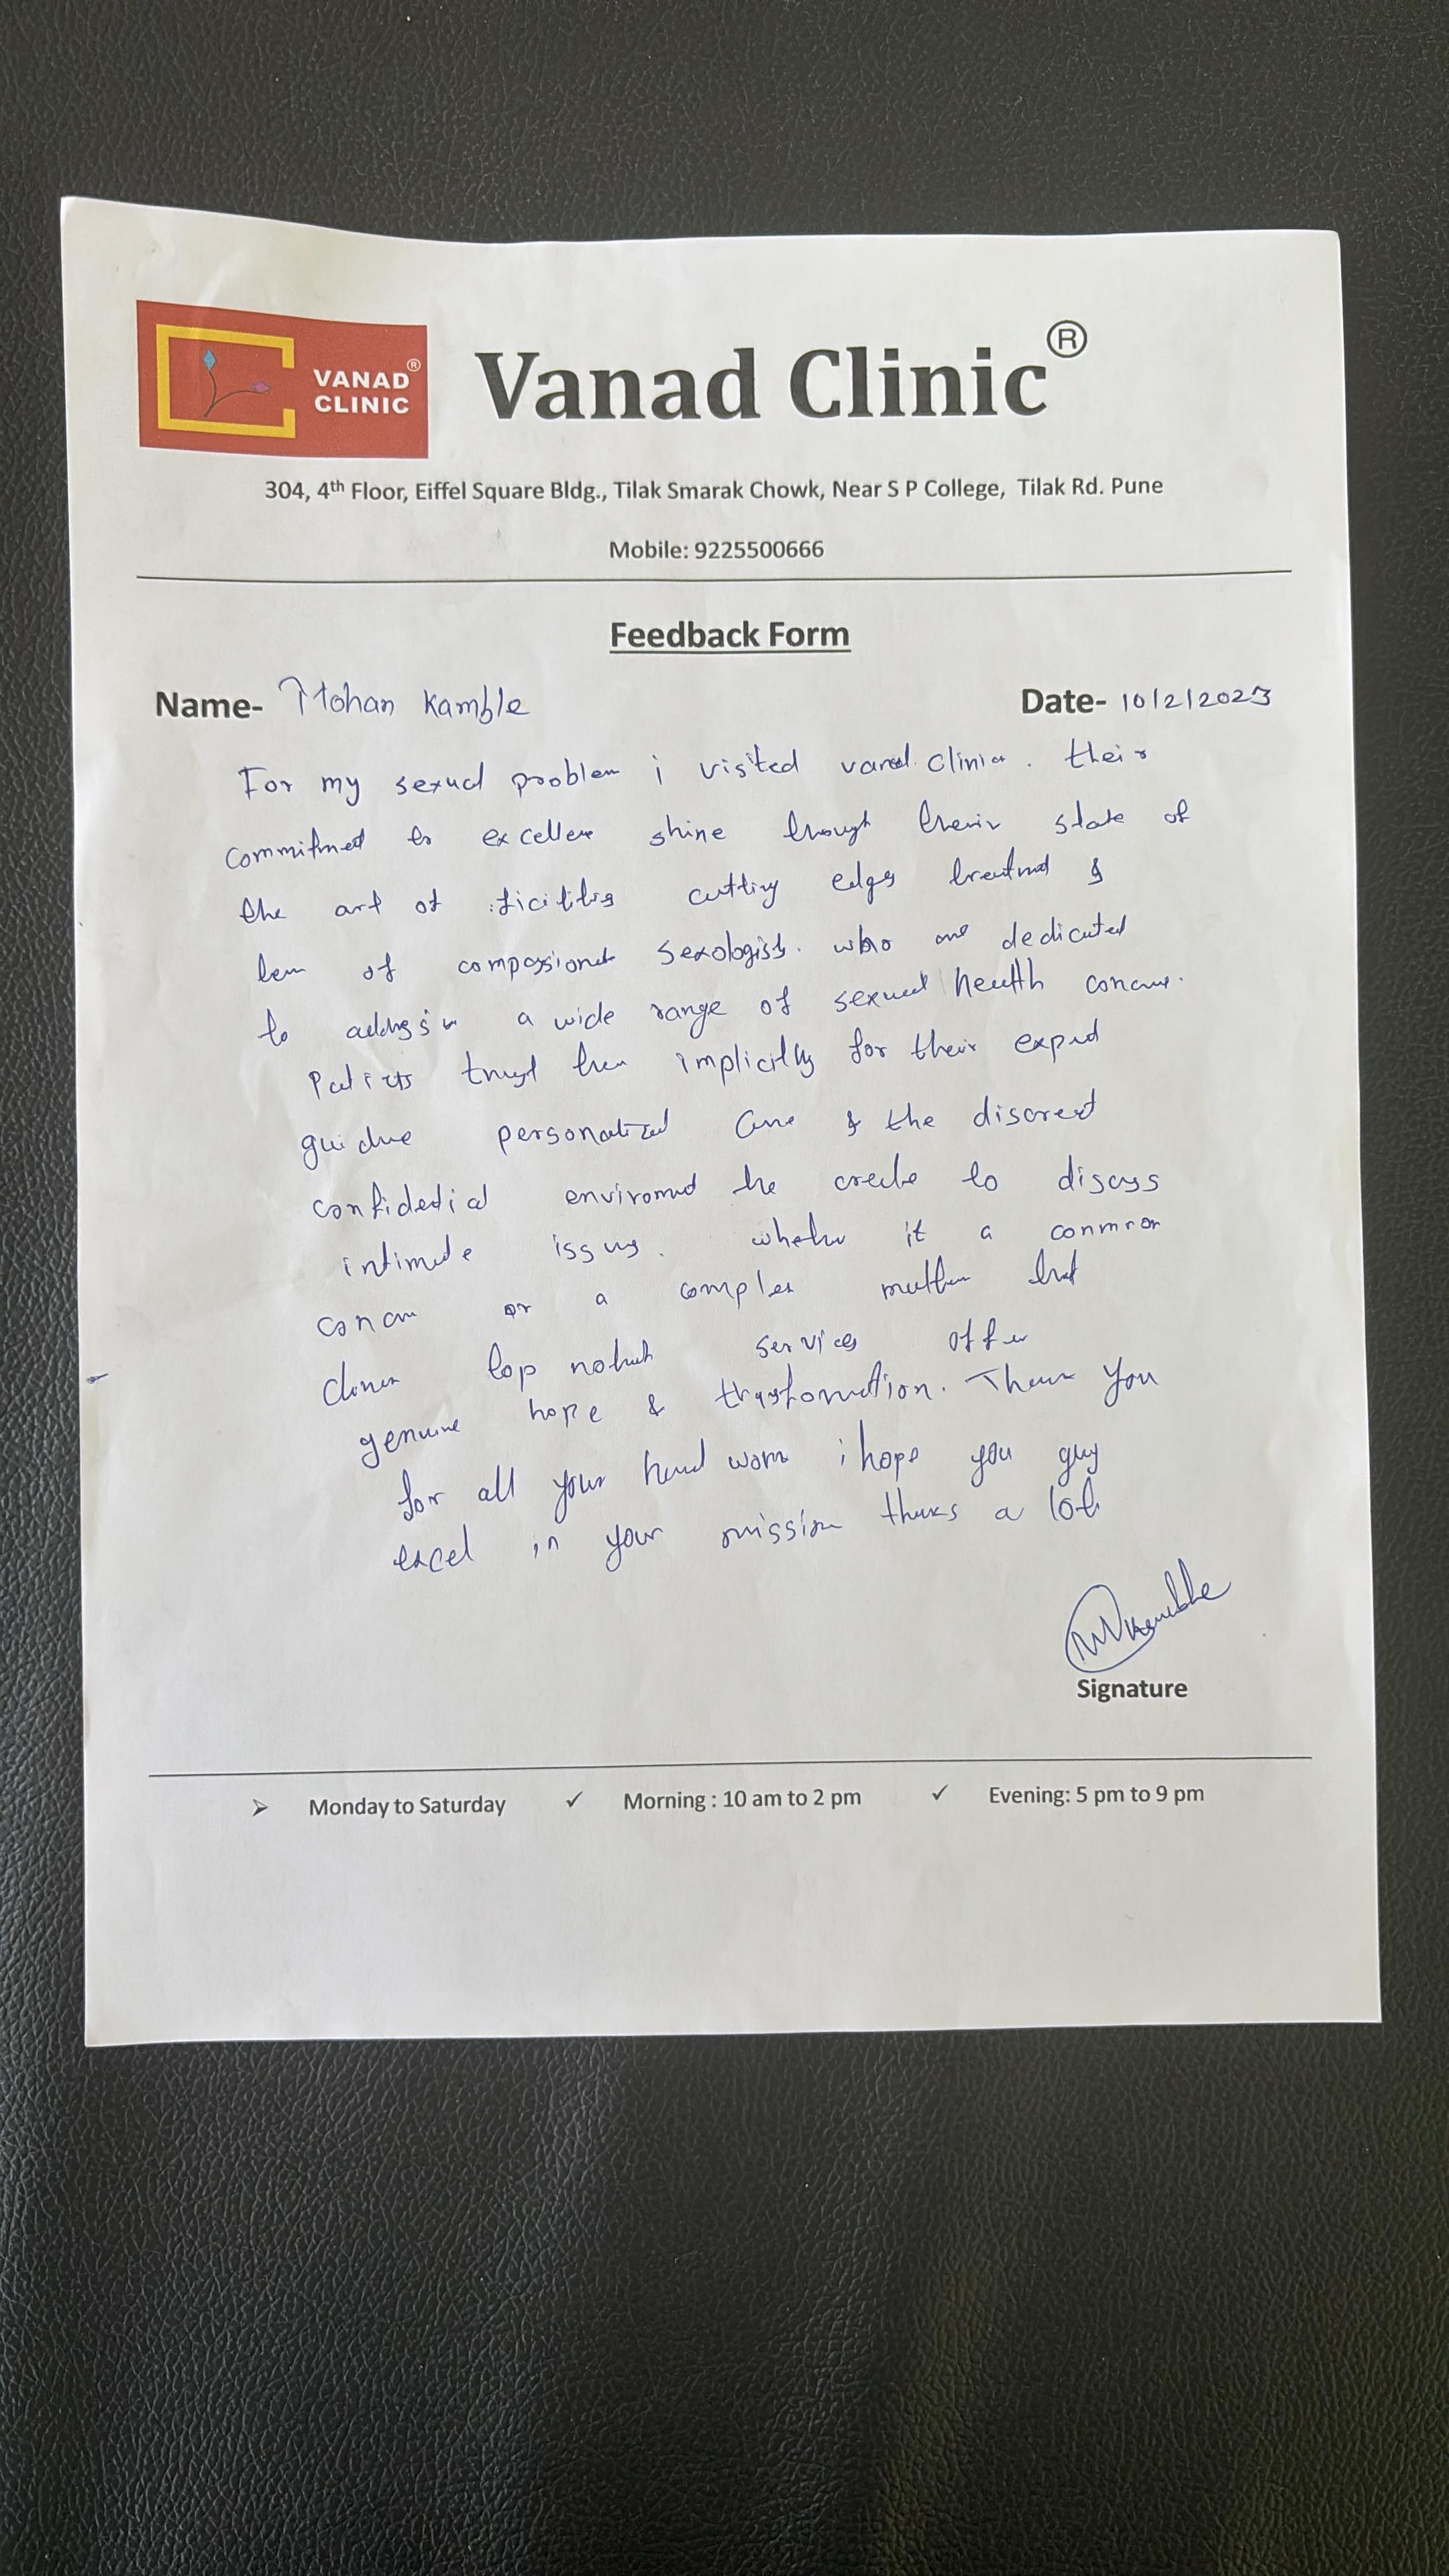 VANAD®
CLINIC
Vanad Clinic®
304, 4th Floor, Eiffel Square Bldg., Tilak Smarak Chowk, Near S P College, Tilak Rd. Pune
Mobile: 9225500666
Feedback Form
Name- Mohan Kamble Date- 10/2/2023
For my sexual problem i visited vanad clinic. their
commitment to excellence shine though their state of
the art of cutting edges treatment &
of compassionate sexologists. who are dedicated
to a wide range of sexual health
trust them implicitly for their expert
personalized care & the discreet
confidential the create to discuss
intimate issues. whether it a common
or a complex that
top services offer
genuine hope & transformation. Thank You
for all your hard work i hope you guy
excel in your mission thanks a lot
Signature
➢ Monday to Saturday ✓ Morning : 10 am to 2 pm ✓ Evening: 5 pm to 9 pm